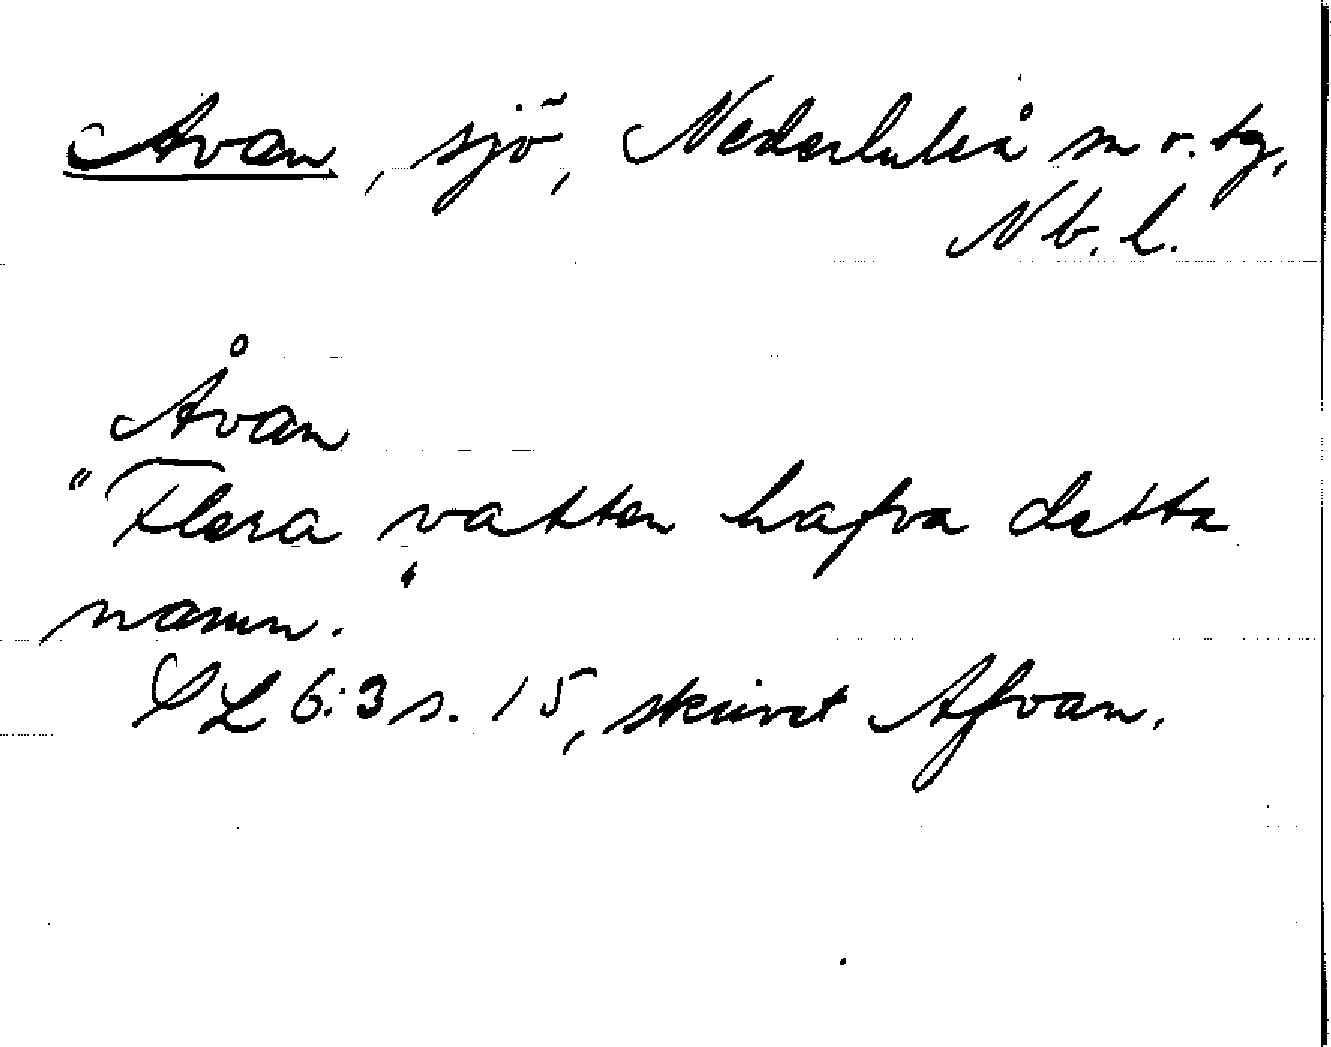 Avan, sjö, Nederluleå sn o. tg,
Nb. l.
Åvan
"Flera vatten hafva detta
namn."
SL 6:3 s. 15, skrivet Afvan.